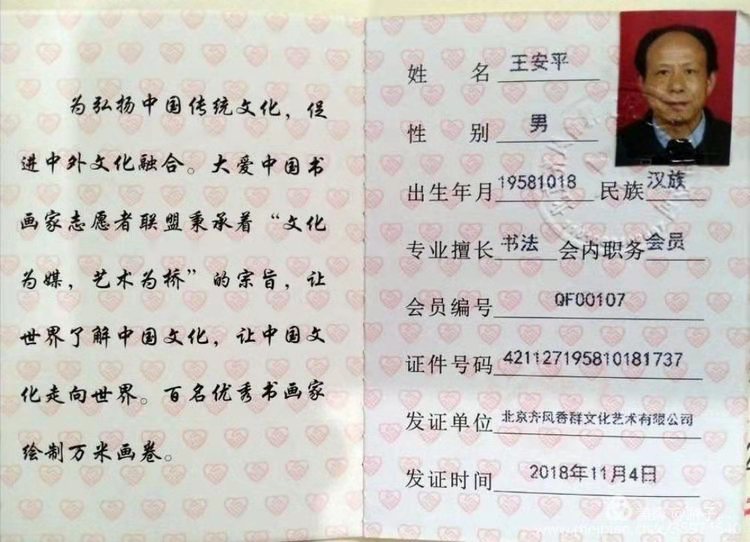 为弘扬中国传统文化，促
进中外文化融合。大爱中国书
画家志愿者联盟秉承着“文化
为媒，艺术为桥”的宗旨，让
世界了解中国文化，让中国文
化走向世界。百名优秀书画家
绘制万米画卷。
姓 名 王安平
性 别 男
出生年月 19581018 民族 汉族
专业擅长 书法 会内职务 会员
会员编号 QF00107
证件号码 421127195810181737
发证单位 北京齐风香群文化艺术有限公司
发证时间 2018年11月4日